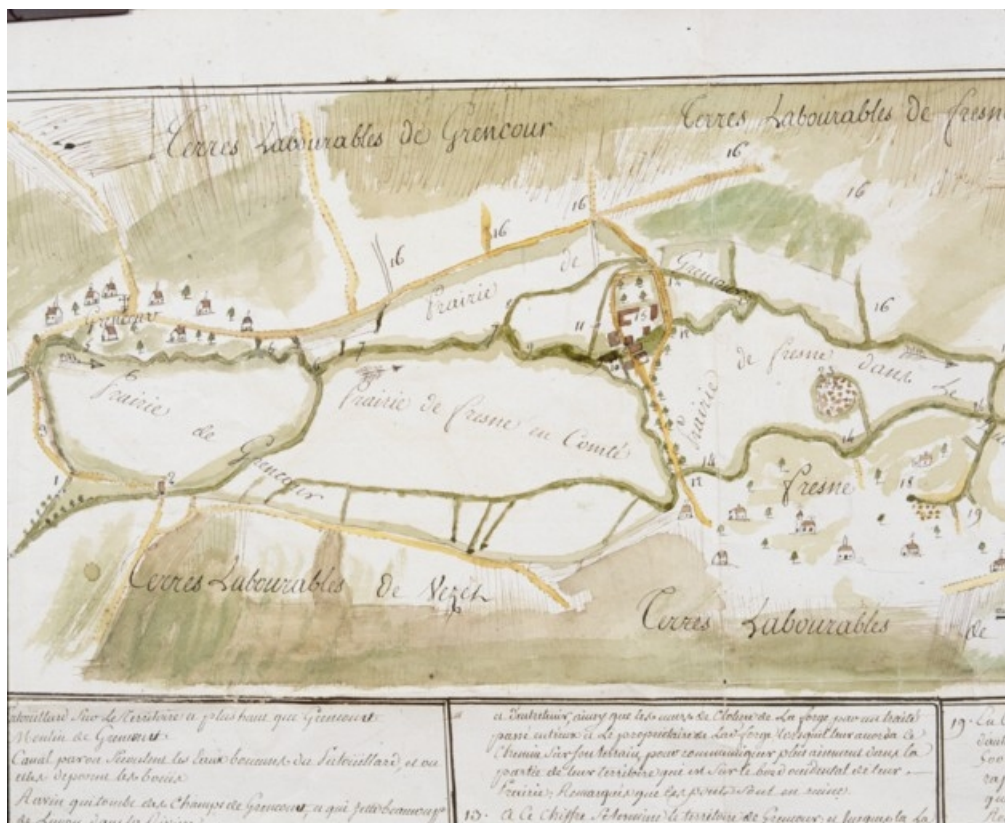 Terres Labourables de Grencour
Terres Labourables de Fresne
16
16
16
16
16
16
Prairie
de
Grencour
Grencour
11
15
12
5
6
7
7
9
Prairie
de
Grencour
Prairie de Fresne en Comté
Prairie
de Fresne dans le
3
1
2
14
12
14
Fresne
18
19
Terres Labourables de Vezet
Terres Labourables
de
sur le Territoire a plus haut que Grencourt
Moulin de Grencourt
Canal par où s'écoulent les Eaux boueuses du Patouillard, et ou
elles deposent les boues
Ravin qui tombe des Champs de Grencourt, a qui jette beaucoup
de Limon dans la Rivière
a Entretenir, ainsy que les murs de Cloture de La forge par un traité
passé entreux a Le proprietaire de Lad. forge lorsquil leur accorda Ce
Chemin Sur Son terrain, pour communiquer plus aisement dans la
partie de leur territoire qui est Sur le bord occidental de leur
Prairie; Remarqués que les ponts Sont en ruine
13. a Ce Chiffre Se termine le territoire de Grencour, a jusques la La
19. La